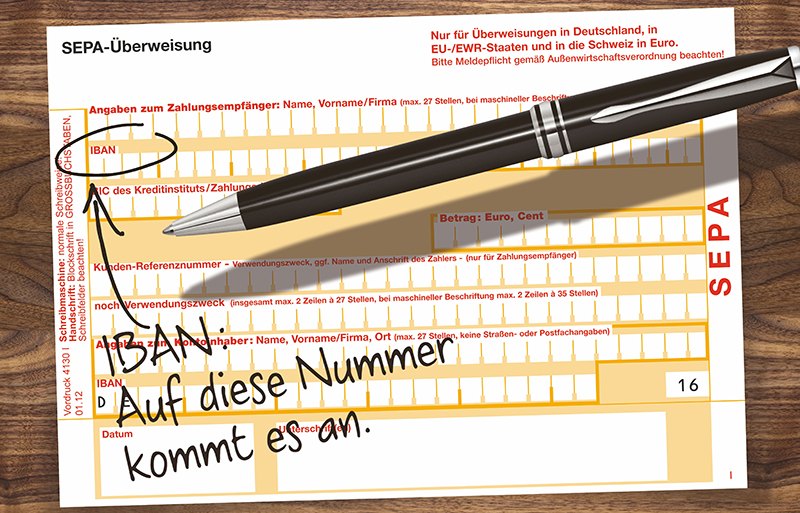 SEPA-Überweisung
Nur für Überweisungen in Deutschland, in
EU-/EWR-Staaten und in die Schweiz in Euro.
Bitte Meldepflicht gemäß Außenwirtschaftsverordnung beachten!
Angaben zum Zahlungsempfänger: Name, Vorname/Firma (max. 27 Stellen, bei maschineller Beschrift
IBAN
BIC des Kreditinstituts/Zahlungs
Betrag: Euro, Cent
Kunden-Referenznummer - Verwendungszweck, ggf. Name und Anschrift des Zahlers - (nur für Zahlungsempfänger)
noch Verwendungszweck (insgesamt max. 2 Zeilen à 27 Stellen, bei maschineller Beschriftung max. 2 Zeilen à 35 Stellen)
Angaben zum Kontoinhaber: Name, Vorname/Firma, Ort (max. 27 Stellen, keine Straßen- oder Postfachangaben)
IBAN
D
16
Datum
Unterschrift(en)
SEPA
I
Schreibmaschine: normale Schreibweise!
Handschrift: Blockschrift in GROSSBUCHSTABEN,
Schreibfelder beachten!
Vordruck 4130 I
01.12
IBAN:
Auf diese Nummer
kommt es an.